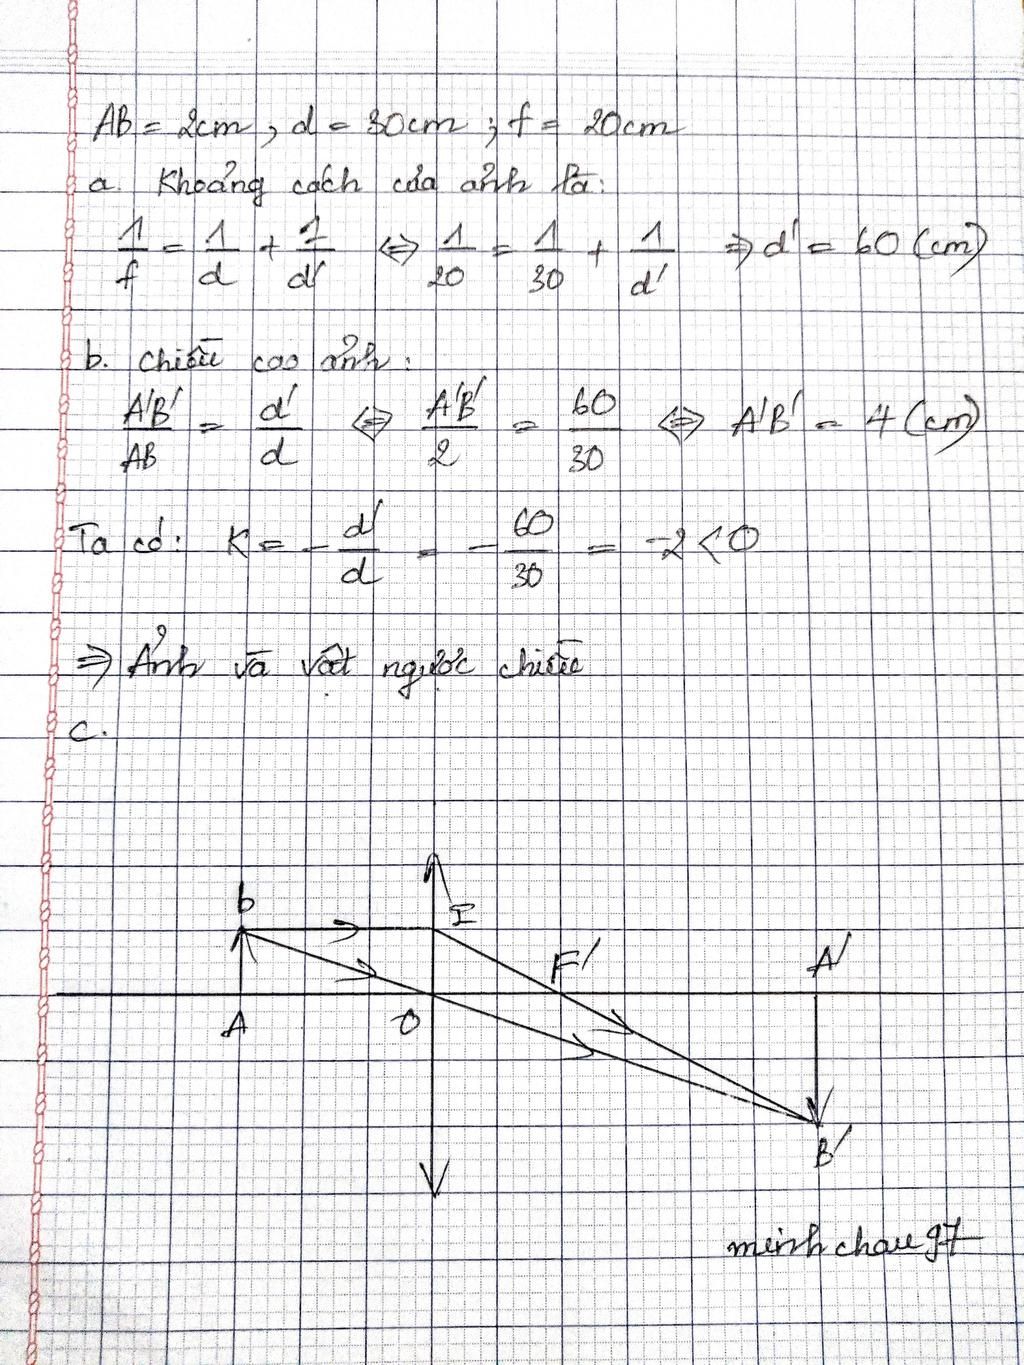 AB = 2cm, d = 30cm; f = 20cm
a. Khoảng cách của ảnh là:
1/f = 1/d + 1/d' ⇔ 1/20 = 1/30 + 1/d' ⇒ d' = 60 (cm)
b. chiều cao ảnh:
A'B'/AB = d'/d ⇔ A'B'/2 = 60/30 ⇔ A'B' = 4 (cm)
Ta có: K = -d'/d = -60/30 = -2 < 0
⇒ Ảnh và vật ngược chiều
c.
b I
F' A'
A O
B'
minhchau97